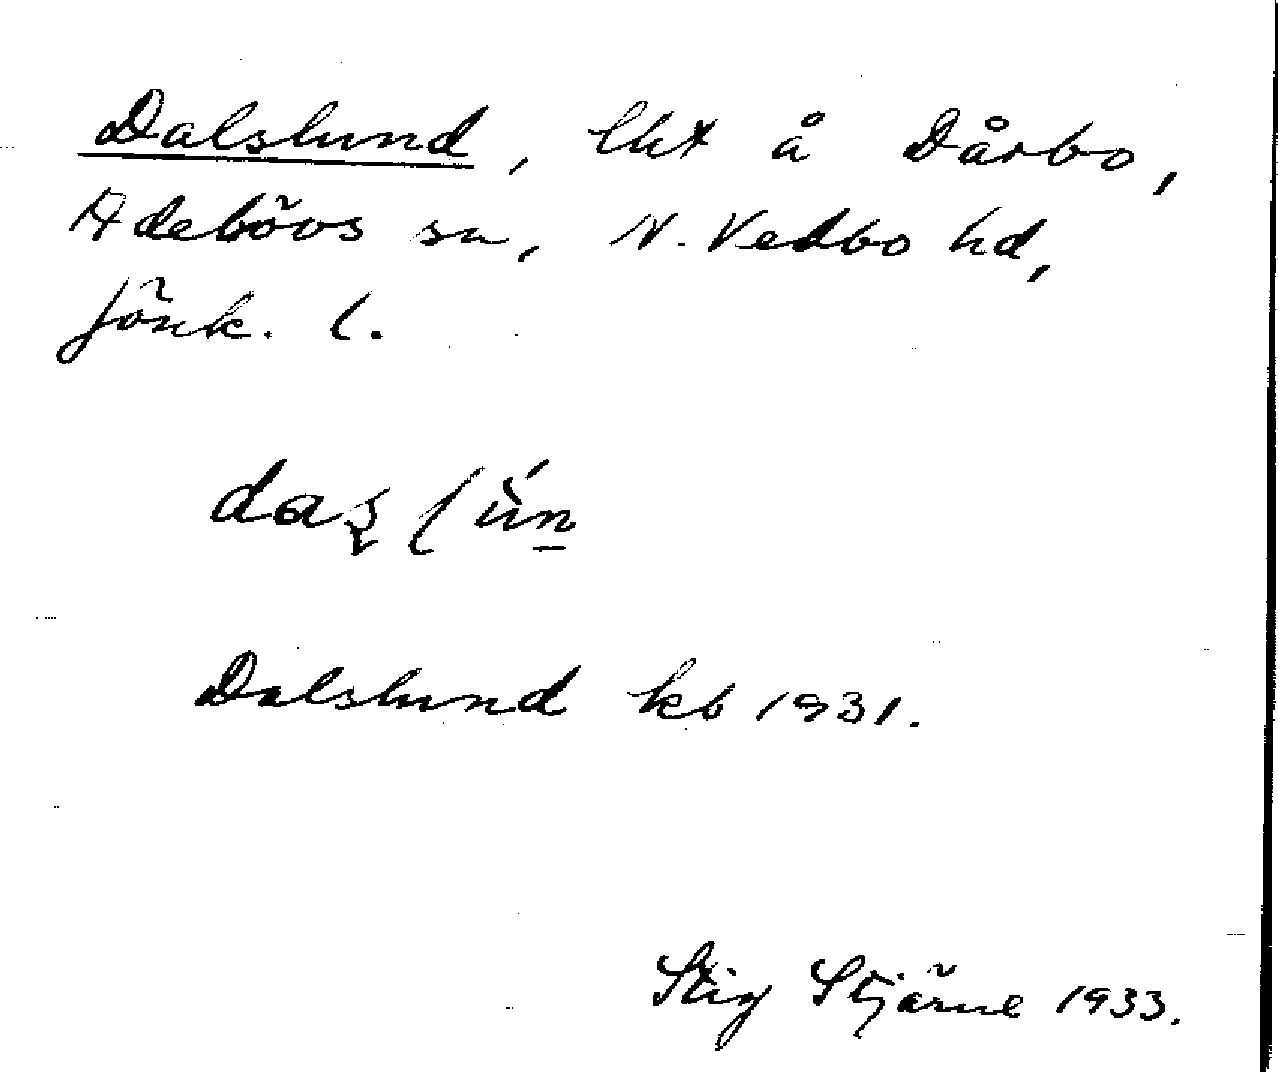 Dalslund, lht å Dårbo,
Adelövs sn, N. Vedbo hd,
Jönk. l.
Dalslund kb 1931.
Stig Stjärne 1933.